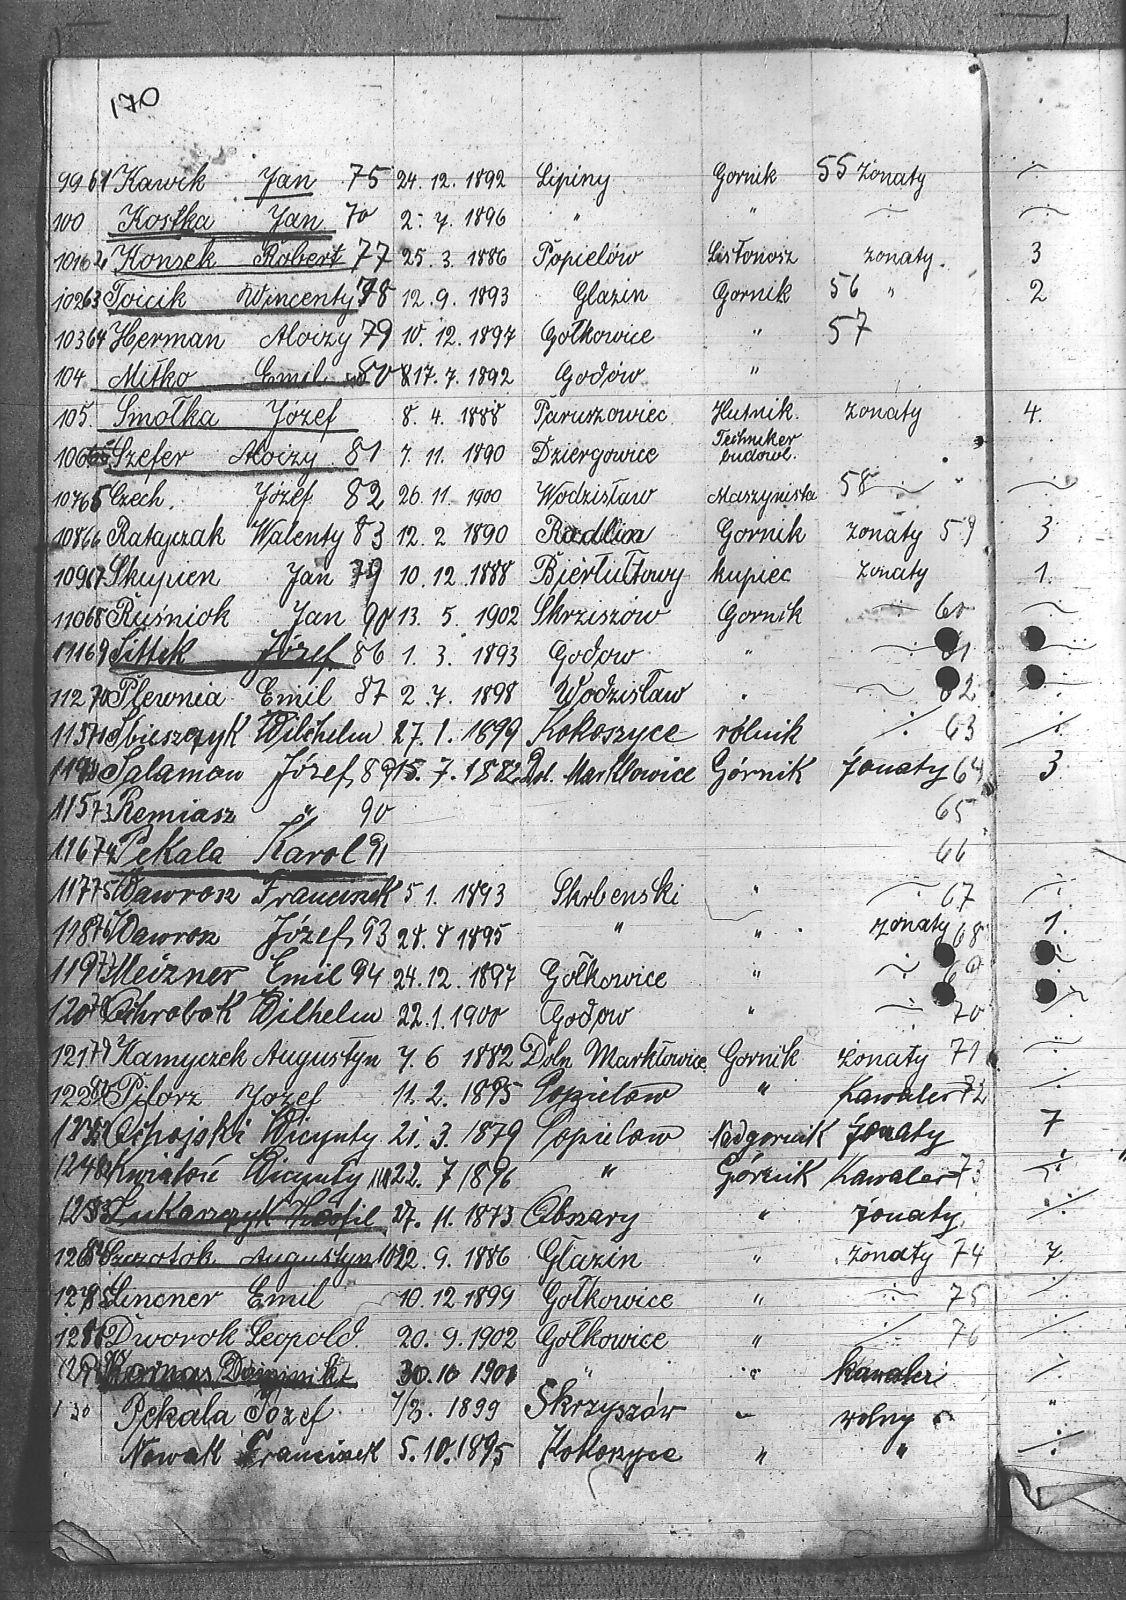 170
99 61 Kawik Jan 75 24. 12. 1892 Lipiny Gornik 55 Zonaty ÷
100 Kostka Jan 70 2. 7. 1896 " " ÷ ÷
101 62 Konsek Robert 77 25. 3. 1886 Popielów Listonosz zonaty. 3
102 63 Wincenty 78 12. 9. 1893 Glazin Gornik 56 " 2
103 64 Herman Aloizy 79 10. 12. 1897 Gołkowice " 57
104. Mitko Emil 80 17. 7. 1892 Godów "
105. Smołka Józef 8. 4. 1888 Paruszowiec Hutnik. zonaty 4.
106 Szefer Aloizy 81 7. 11. 1890 Dziergowice Techniker budowl.
107 65 Czech. Józef 82 26. 11. 1900 Wodzisław Maszynista 58 ÷ ÷
108 66 Ratajczak Walenty 83 12. 2. 1890 Radlin Gornik zonaty 59 3
109 67 Skupien Jan 79 10. 12. 1888 Biertułtowy kupiec zonaty 1.
110 68 Ruśniok Jan 90 13. 5. 1902 Skrziszów Gornik ÷ 60 ÷
111 69 Sittek Józef 86 1. 3. 1893 Godow " ÷ 61
112 70 Plewnia Emil 87 2. 7. 1898 Wodzisław " ÷ 62 ÷
113 71 Wilchelm 27. 1. 1899 Kokoszyce rólnik ÷ 63 ÷
114 Salamaw Józef 89 15. 7. 1882 Dol. Markłowice Górnik żonaty 64 3
115 73 Remiasz " 90 65
116 74 Pekala Karol 91 66
117 75 Wawrosz Franciszek 5 1. 1893 Skrbenski " ÷ 67 ÷
118 76 Wawrosz Józef 93 28. 8 1895 " " zonaty 68 1.
119 77 Meizner Emil 94 24. 12. 1897 Gołkowice " ÷ 69
120 78 Chrobok Wilhelm 22. 1. 1900 Godow " ÷ 70 ÷
121 79 Kamyczek Augustyn 7. 6 1882 Doln Markłowice Gornik żonaty 71 ÷
122 80 Pifórz Jozef 11. 2. 1895 Popielow " Kawaler 72 ÷
Wicynty 21. 3. 1879 Popielow Nadgorniak żonaty 7
124 Wicynty 22. 7 1896 " Górnik Kawaler 73 ÷
125 83 Lukarczyk 27. 11. 1873 Obszary " żonaty. ÷
126 84 Szczotok Augustyn 102 2. 9. 1886 Głazin " zonaty 74 7.
127 85 Lincner Emil 10. 12 1899 Gołkowice " ÷ 75 ÷
128 86 Dworok Leopold. 20. 9. 1902 Gołkowice " ÷ 76 ÷
129 Karnas Dominik 30. 10 1901 " " kawaler ÷
130 Pękala Józef 7/3. 1899 Skrzyszów " wolny "
Nowak Franciszek 5. 10. 1895 Kokoszyce " " ÷